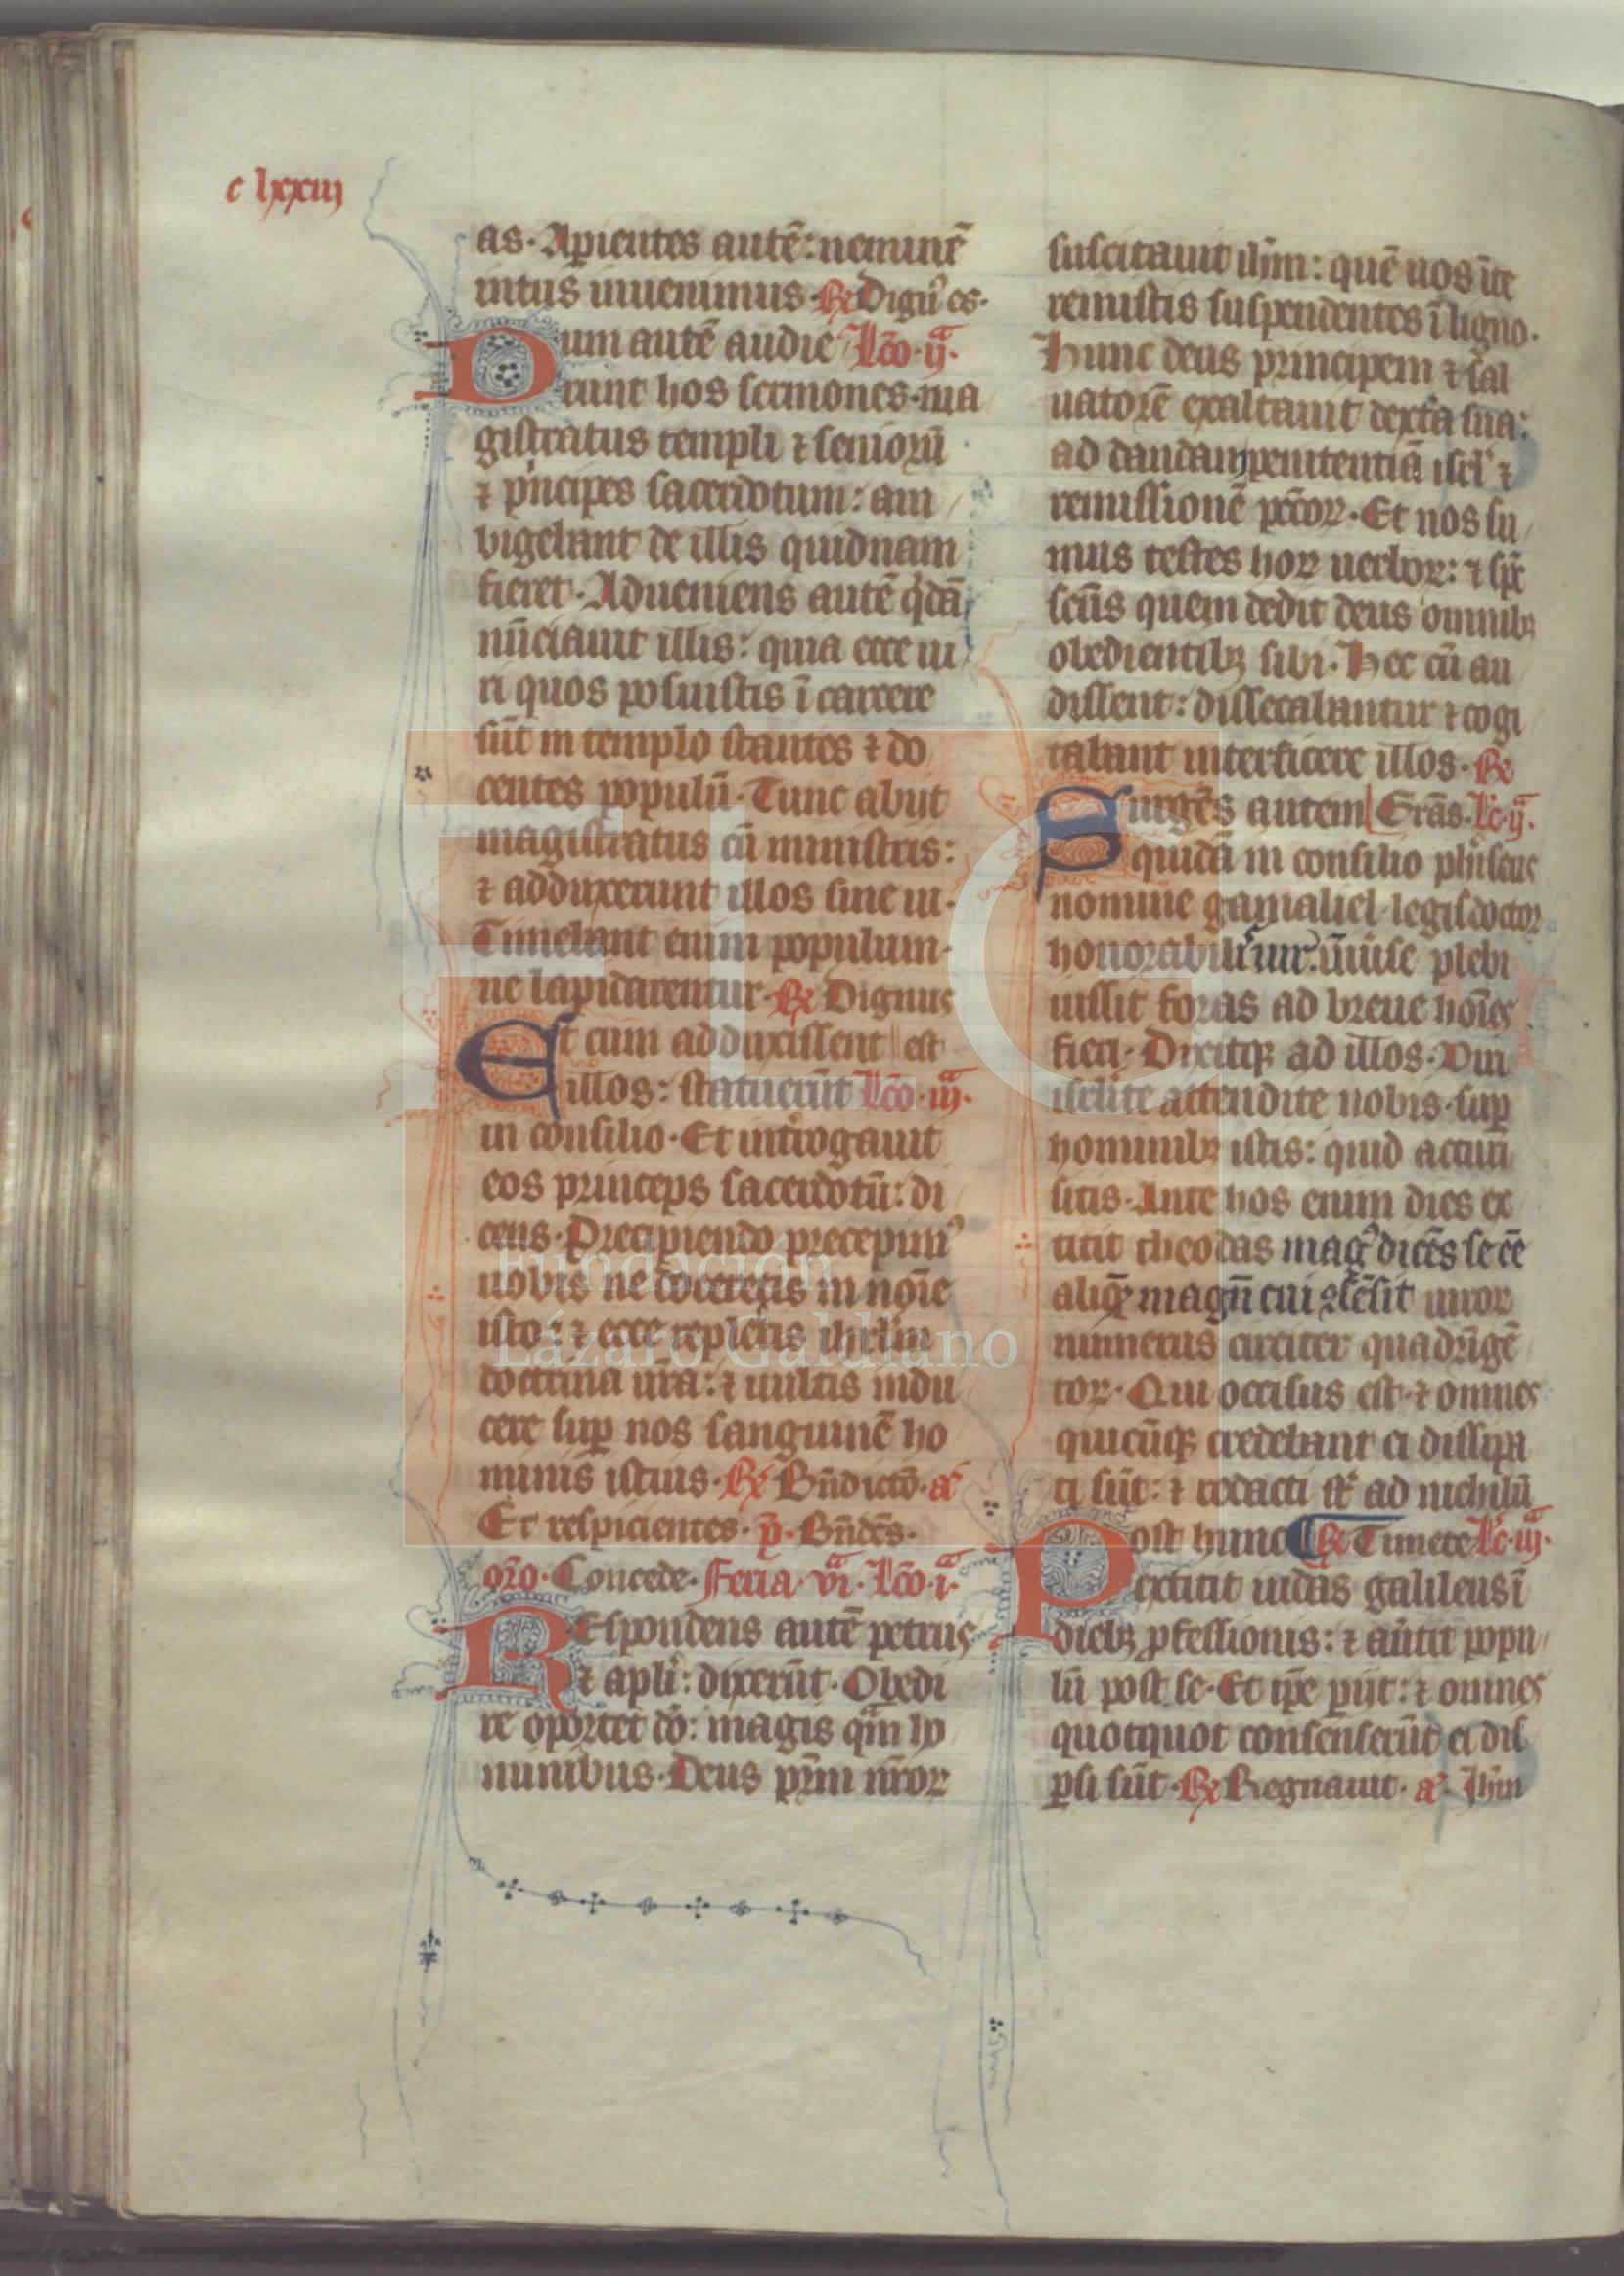 c lxxiij
as. Apientes autē: neminē
intus inuenimus. R Dignꝰ es.
Dum autē audie Lco. ij.
runt hos sermones. ma
gistratus templi ⁊ seniorū
⁊ pͥncipes sacerdotum: am
bigebant de illis quidnam
fieret. Adueniens autē qͥdā
nūciauit illis: quia ecce ui
ri quos posuistis ī carcere
sūt in templo stantes ⁊ do
centes populū. Tunc abijt
magistratus cū ministris:
⁊ adduxerunt illos sine ui.
Timebant enim populum.
ne lapidarentur. R Dignus
Et cum adduxissent est
illos: statuerūt Lco. iij.
in consilio. Et introgauit
eos princeps sacerdotū: di
cens. Precipiendo precepimꝰ
uobis ne doceretis in noīe
isto: ⁊ ecce repletis ihrlm
doctrina ūra: ⁊ uultis indu
cere suꝑ nos sanguinē ho
minis istius. R Bn̄dictꝰ. a
Et respicientes. p̄. Bn̄dēs.
oro. Concede. Feria. vi. Lco. i.
Respondens autē petrus
⁊ apli: dixerūt. Obedi
re oportet dō: magis qm̄ ho
minibus. Deus pr̄m nr̄oꝝ
suscitauit ihm: quē uos īte
remistis suspendentes ī ligno.
Hunc deus principem ⁊ sal
uatorē exaltauit dextra sua:
ad dandam penitentiā isrl ⁊
remissionē pcc̄oꝝ. Et nos su
mus testes hoꝝ uerboꝝ: ⁊ sp̄c
sc̄us quem dedit deus omnibꝫ
obedientibꝫ sibi. Hec cū au
dissent: dissecabantur ⁊ cogi
tabant interficere illos. R
Surgēs autem Grās. Lc. ij.
quidā in consilio phiseus
nomine gamaliel. legisdoctor
honorabilis uir. ūiuse plebi
iussit foras ad breue hoīes
fieri. Dixitqꝫ ad illos. Viri
isrlite attendite nobis. suꝑ
hominibꝫ istis: quid acturi
sitis. Ante hos enim dies ex
titit theodas magꝰ dicēs se eē
aliqͤ magn̄ cui ꝯsēsit uiroꝝ
numerus circiter quadrīgē
toꝝ. Qui occisus est. ⁊ omnes
quicūqꝫ credebant ei dissipa
ti sūt: ⁊ redacti st̄ ad nichilū
Post hunc R Timete Lc. iij.
extitit iudas galileus ī
diebꝫ ꝓfessionis: ⁊ aūtit popu
lū post se. Et ip̄e ꝑijt: ⁊ omnes
quotquot consenserūt ei dis
ꝑsi sūt. R Regnauit. a. Ihm
FLG
Fundación
Lázaro Galdiano